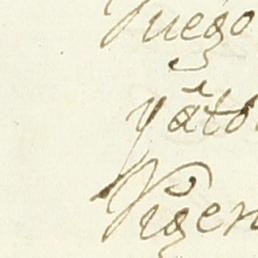 Fuego
yãto
Vigen